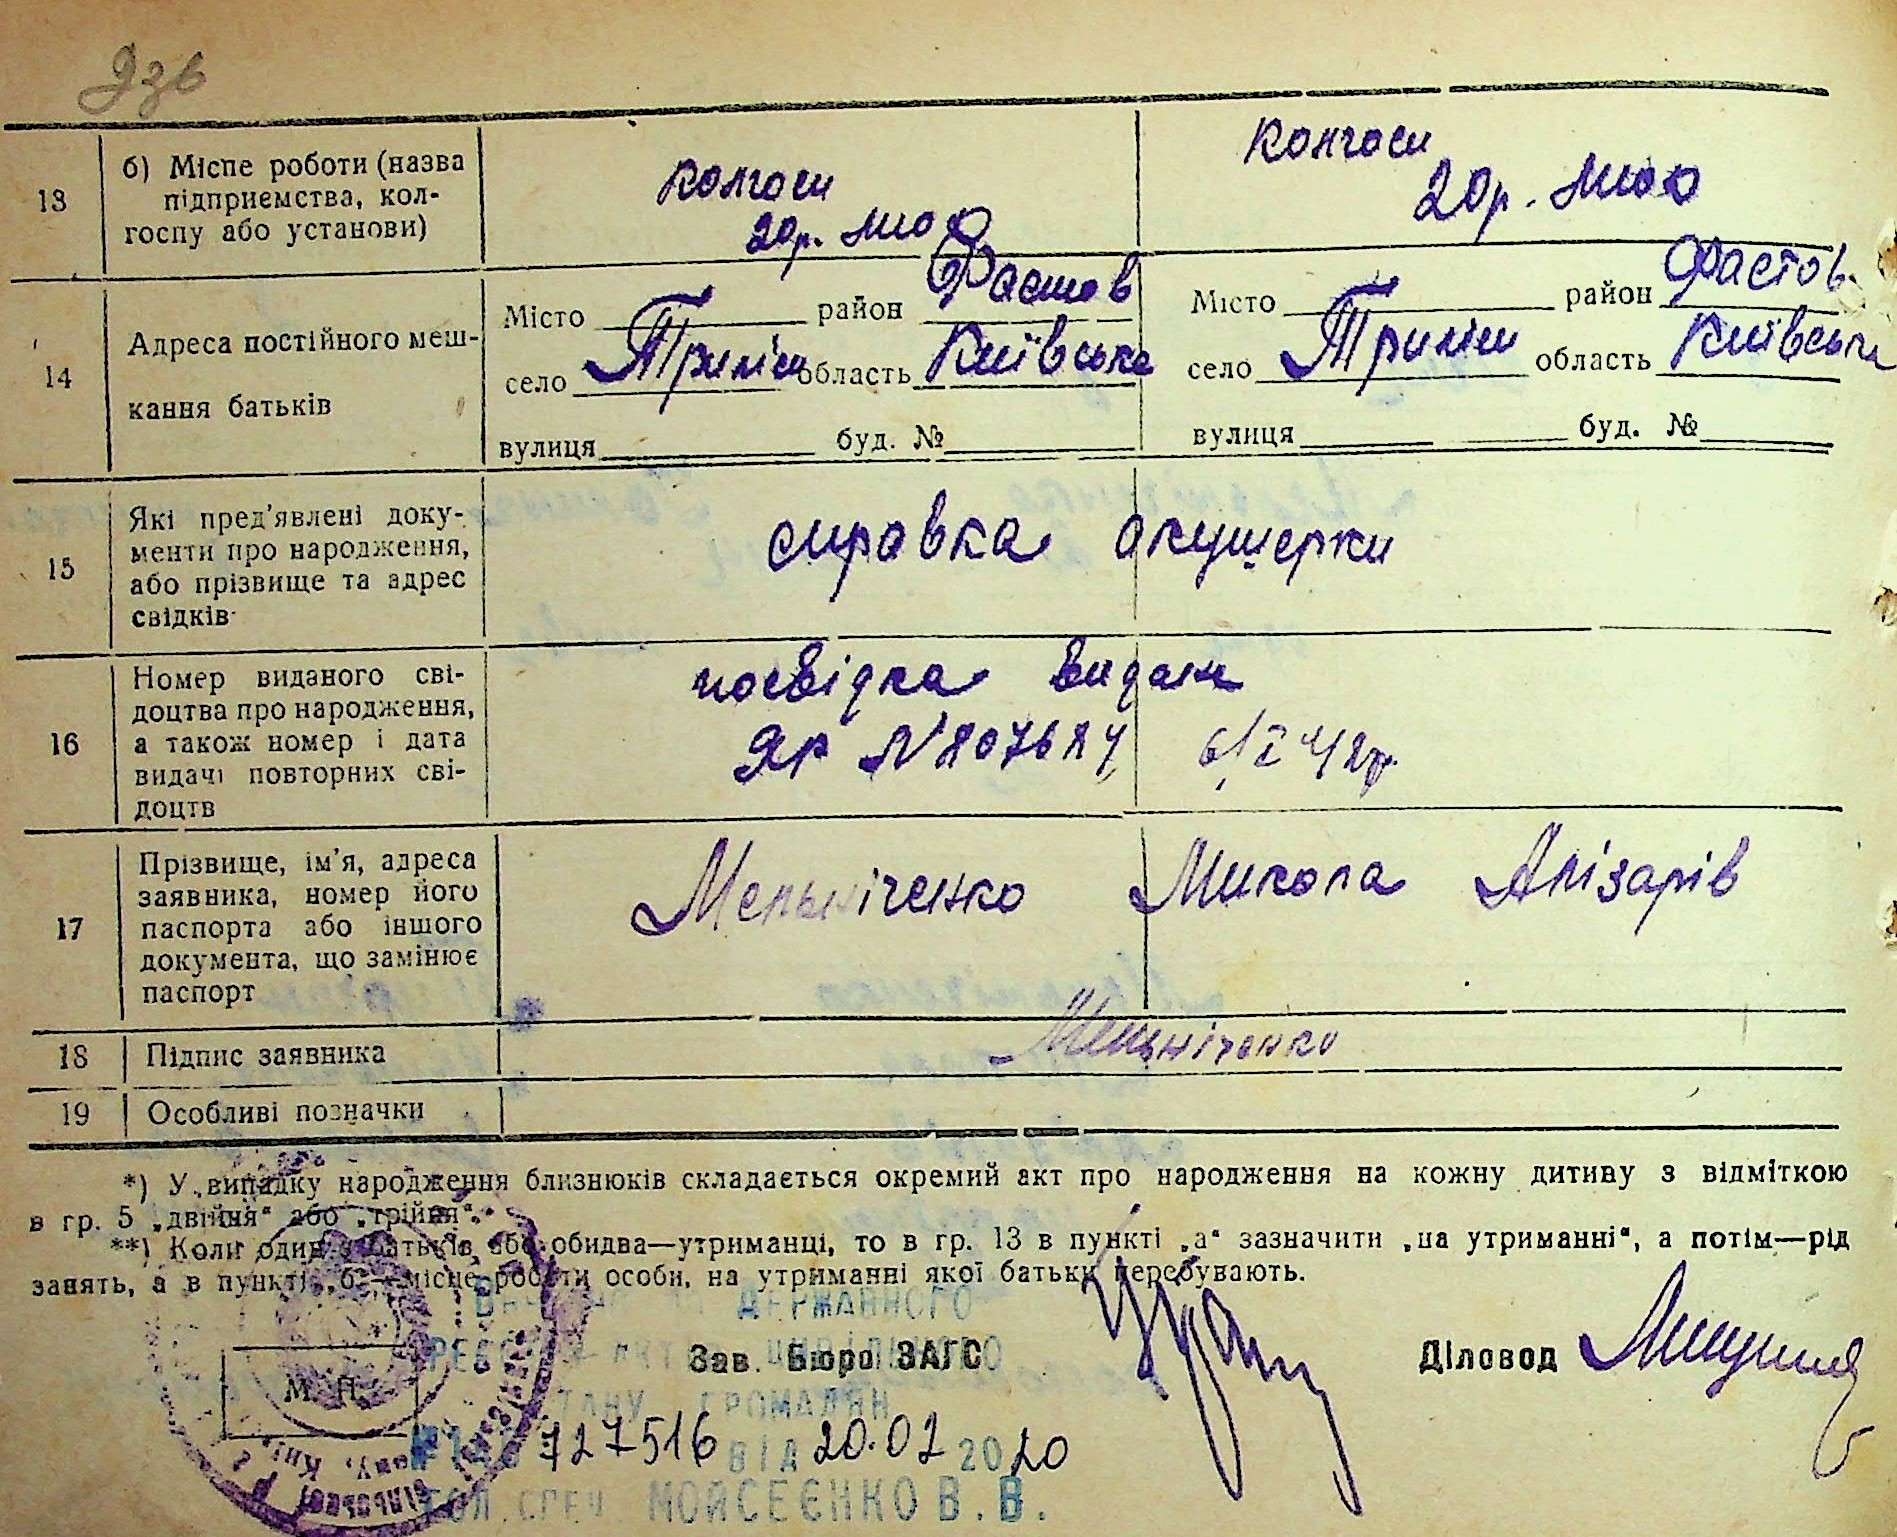 13
б) Місце роботи (назва
підприємства, кол-
госпу або установи)
колгосп
20р. МЮД
Колгосп
20р. МЮД
14
Адреса постійного меш-
кання батьків
Місто район Фастов
село Триліси область Київська
вулиця буд. №
Місто район Фастов.
село Триліси область Київська
вулиця буд. №
15
Які пред'явлені доку-
менти про народження,
або прізвище та адрес
свідків
справка акушерки
16
Номер виданого сві-
доцтва про народження,
а також номер і дата
видачі повторних сві-
доцтв
посвідка видана
ЯР №807684
17
Прізвище, ім'я, адреса
заявника, номер його
паспорта або іншого
документа, що замінює
паспорт
Мельніченко Микола Алізарів
18
Підпис заявника
Мельніченко
19
Особливі позначки
*) У випадку народження близнюків складається окремий акт про народження на кожну дитину з відміткою
в гр. 5 „двійня" або „трійня".
**) Коли один з батьків або обидва—утриманці, то в гр. 13 в пункті „а" зазначити „на утриманні", а потім—рід
занять, а в пункті „б"—місце роботи особи, на утриманні якої батьки перебувають.
ДЕРЖАВНОГО
Зав. Бюро ЗАГС
Діловод
М. П.
ГРОМАДЯН
727516 ВІД 20.02 2020
МОЙСЕЄНКО В. В.